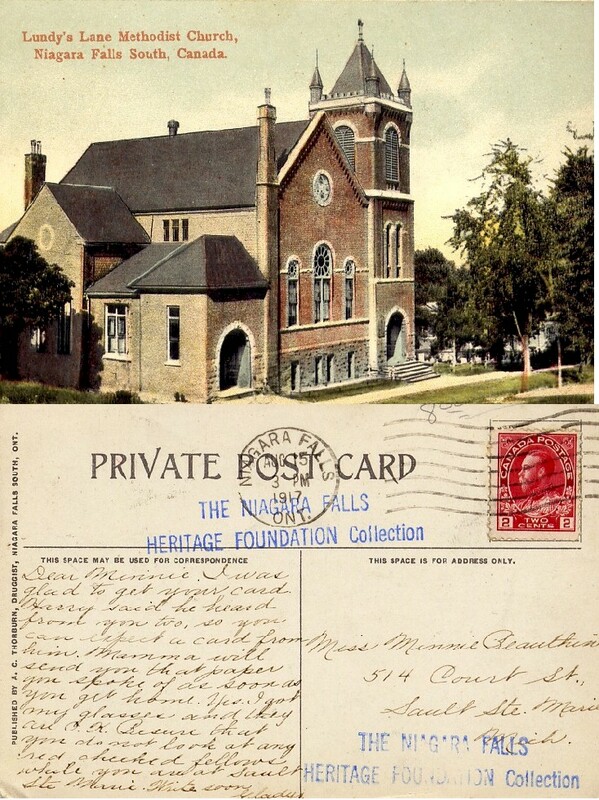 Lundy's Lane Methodist Church,
Niagara Falls South, Canada.
PRIVATE POST CARD
NIAGARA FALLS
AUG 15
3 PM
1917
ONT.
CANADA POSTAGE
2 TWO CENTS 2
THE NIAGARA FALLS
HERITAGE FOUNDATION Collection
THIS SPACE MAY BE USED FOR CORRESPONDENCE
THIS SPACE IS FOR ADDRESS ONLY.
PUBLISHED BY A. C. THORBURN, DRUGGIST, NIAGARA FALLS SOUTH, ONT.
Dear Minnie, I was
glad to get your card.
Harry said he heard
from you too, so you
can expect a card from
him. Mamma will
send you that paper
you spoke of as soon as
you get home. Yes, I got
my glasses and they
are O.K. Be sure that
you do not look at any
red cheeked fellows
while you are at Sault
Ste Marie. Write soon
Gladys
Miss Minnie
514 Court St.,
Sault Ste. Marie
Mich.
THE NIAGARA FALLS
HERITAGE FOUNDATION Collection